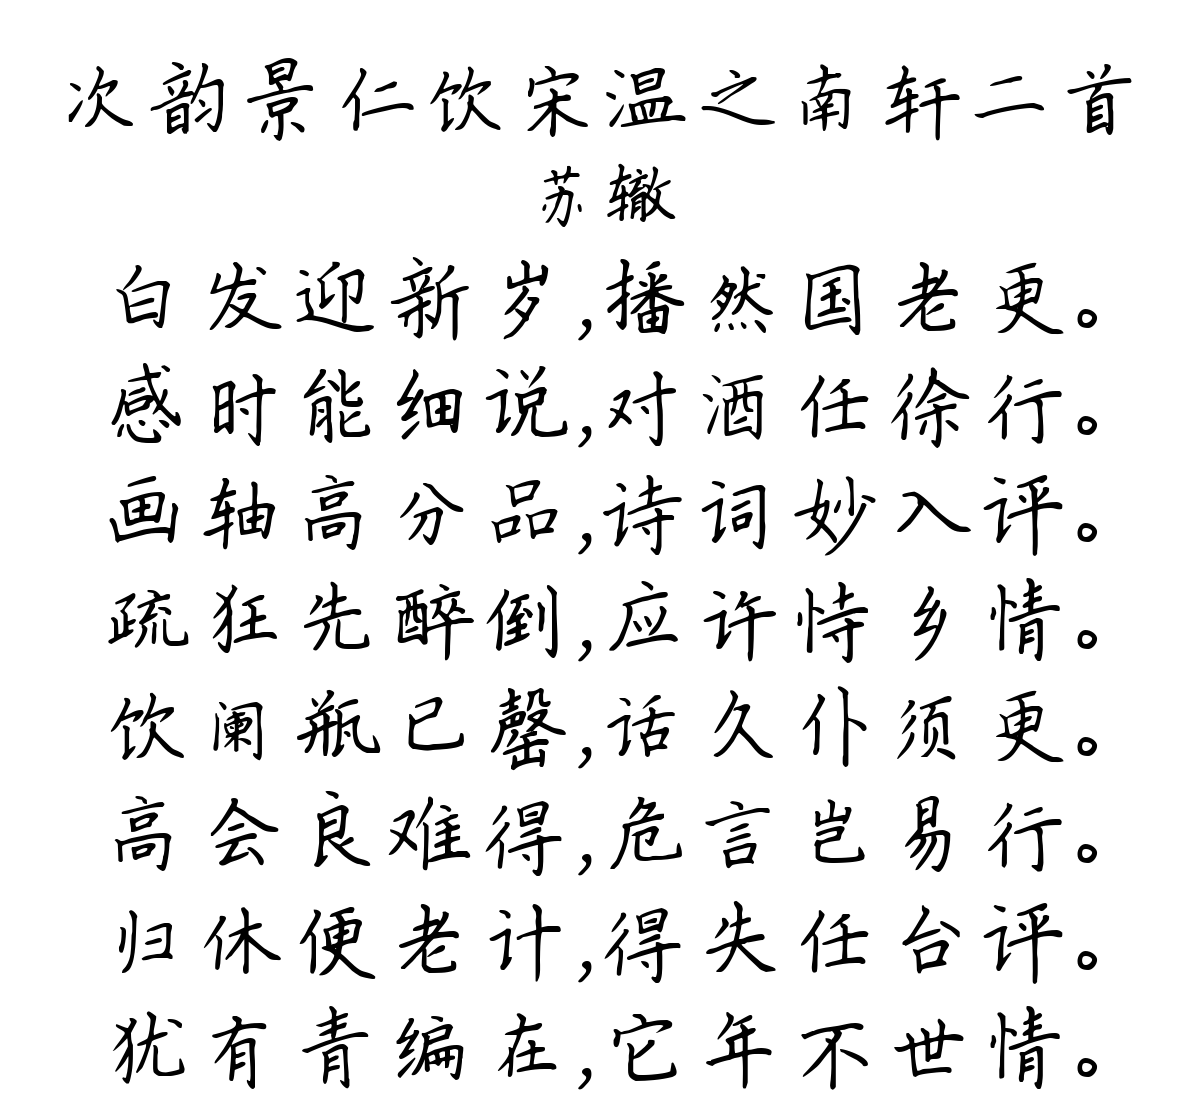 次韵景仁饮宋温之南轩二首
苏辙
白发迎新岁,播然国老更。
感时能细说,对酒任徐行。
画轴高分品,诗词妙入评。
疏狂先醉倒,应许恃乡情。
饮阑瓶已罄,话久仆须更。
高会良难得,危言岂易行。
归休便老计,得失任台评。
犹有青编在,它年不世情。